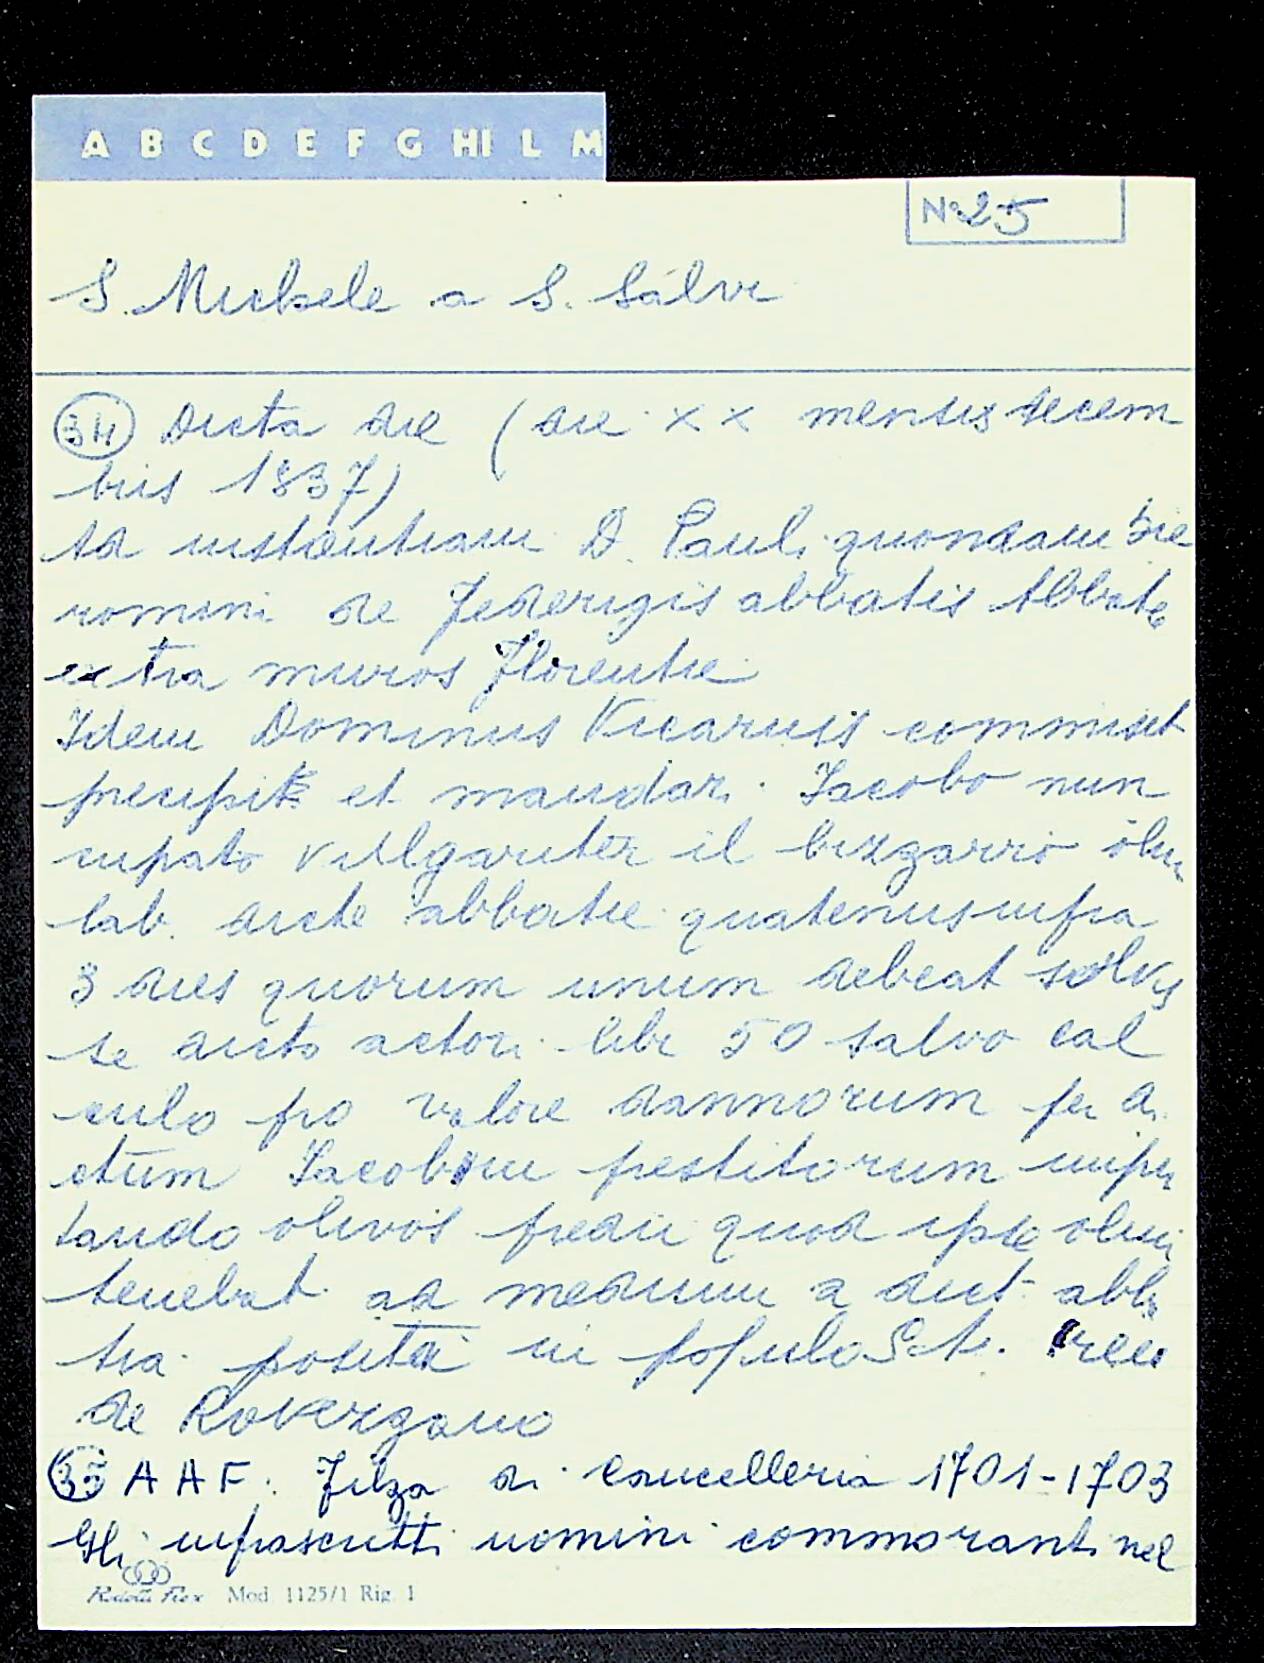 A B C D E F G HI L M
N° 25
S. Michele a S. Salvi
34 Dicta die (die XX mensis decem
bris 1837)
Ad instantiam D. Pauli quondam Hie
romini de Federigis abbatis Abbatie
extra muros Florentie
Idem Dominus Vicarius commisit
precipit et mandar. Jacobo nun
cupato vulgariter il bizzarro olim
lab. dicte abbatie quatenus infra
3 dies quorum unum debeat solvis
se dicto actori libr 50 salvo cal
culo pro valore dannorum per di
ctum Jacobum prestitorum
tando olivos predii quod ipse olim
tenebat ad medium a dict abba
tia posita in populo
de Rovezzano
35 AAF. Filza di Cancelleria 1701-1703
Gli infrascritti uomini commoranti nel
Rodotti Flex Mod 1125/1 Rig. 1